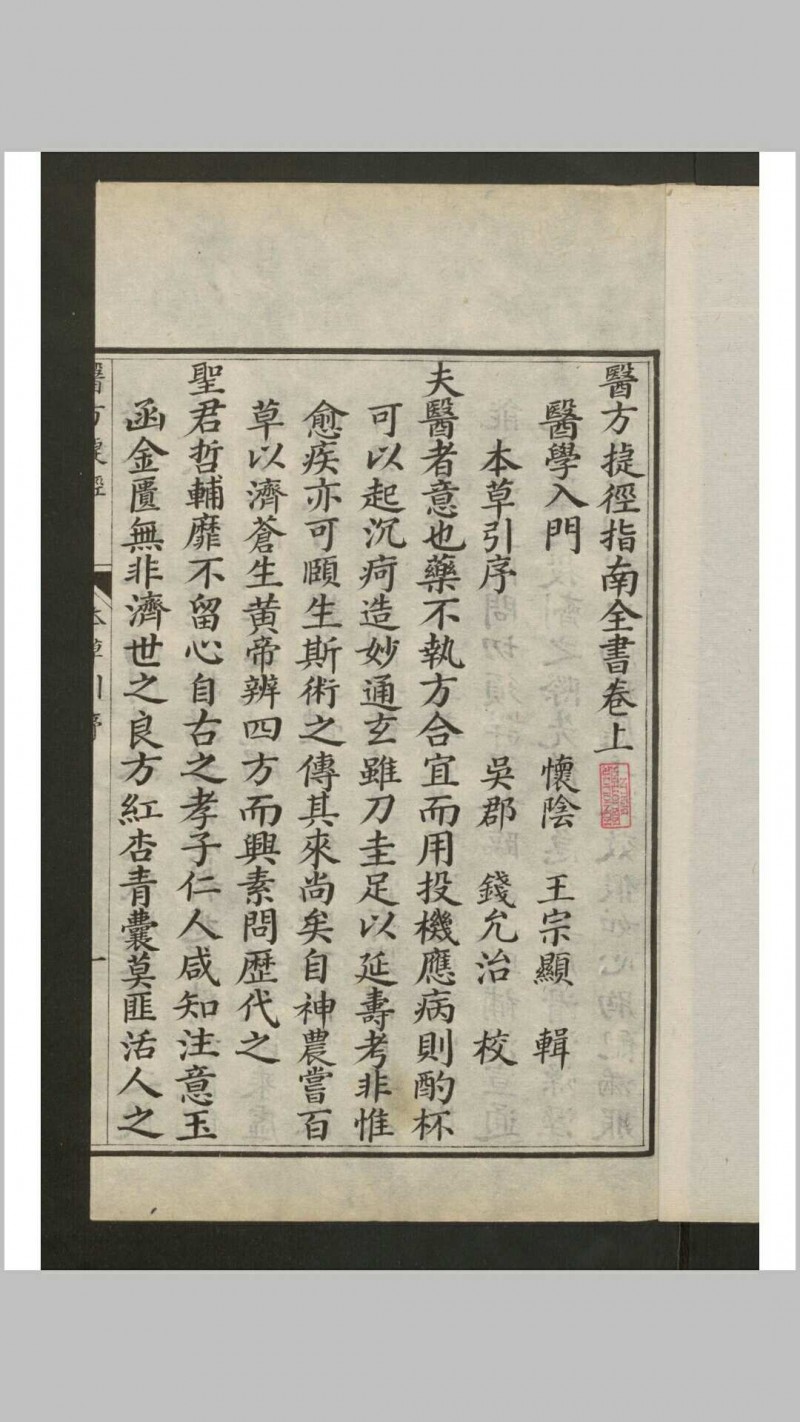 醫方捷徑指南全書卷上
醫學入門 懷陰 王宗顯 輯
本草引序 吳郡 錢允治 校
夫醫者意也藥不執方合宜而用投機應病則酌杯
可以起沉疴造妙通玄雖刀圭足以延壽考非惟
愈疾亦可頤生斯術之傳其來尚矣自神農嘗百
草以濟蒼生黄帝辨四方而興素問歷代之
聖君哲輔靡不留心自古之孝子仁人咸知注意玉
函金匱無非濟世之良方紅杏青囊莫匪活人之
醫方捷徑 本草引序 一